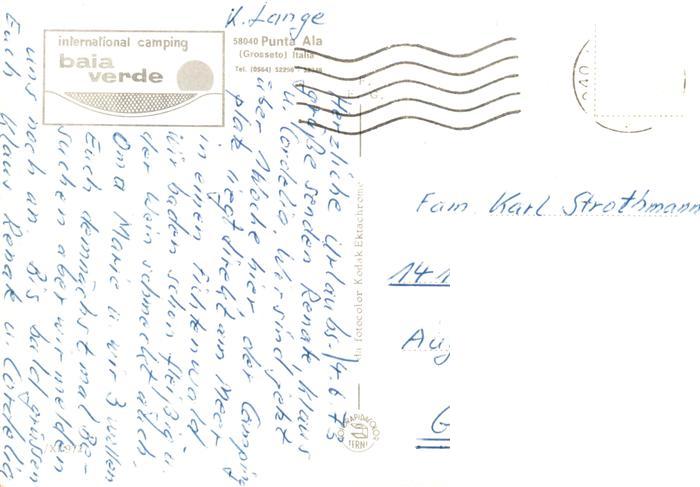 K. Lange
international camping
baia
verde
58040 Punta Ala
(Grosseto) Italia
Tel. (0564) 52298 -
Herzliche Urlaubs- 14.6.73
grüße senden Renate, Klaus
u. Cordelia. Wir sind jetzt
über Woche hier, der Camping
platz liegt direkt am Meer
in einem Fichtenwald
Wir baden schon fleißig u.
der Wein schmeckt auch.
Oma Marie u. wir 3 wollen
Euch demnächst mal Be-
suchen aber wir melden
uns noch an. Bis bald grüssen
Euch Klaus Renate u. Cordelia
fotocolor Kodak Ektachrome
TERNI
Fam. Karl Strothmann
141
Au
G